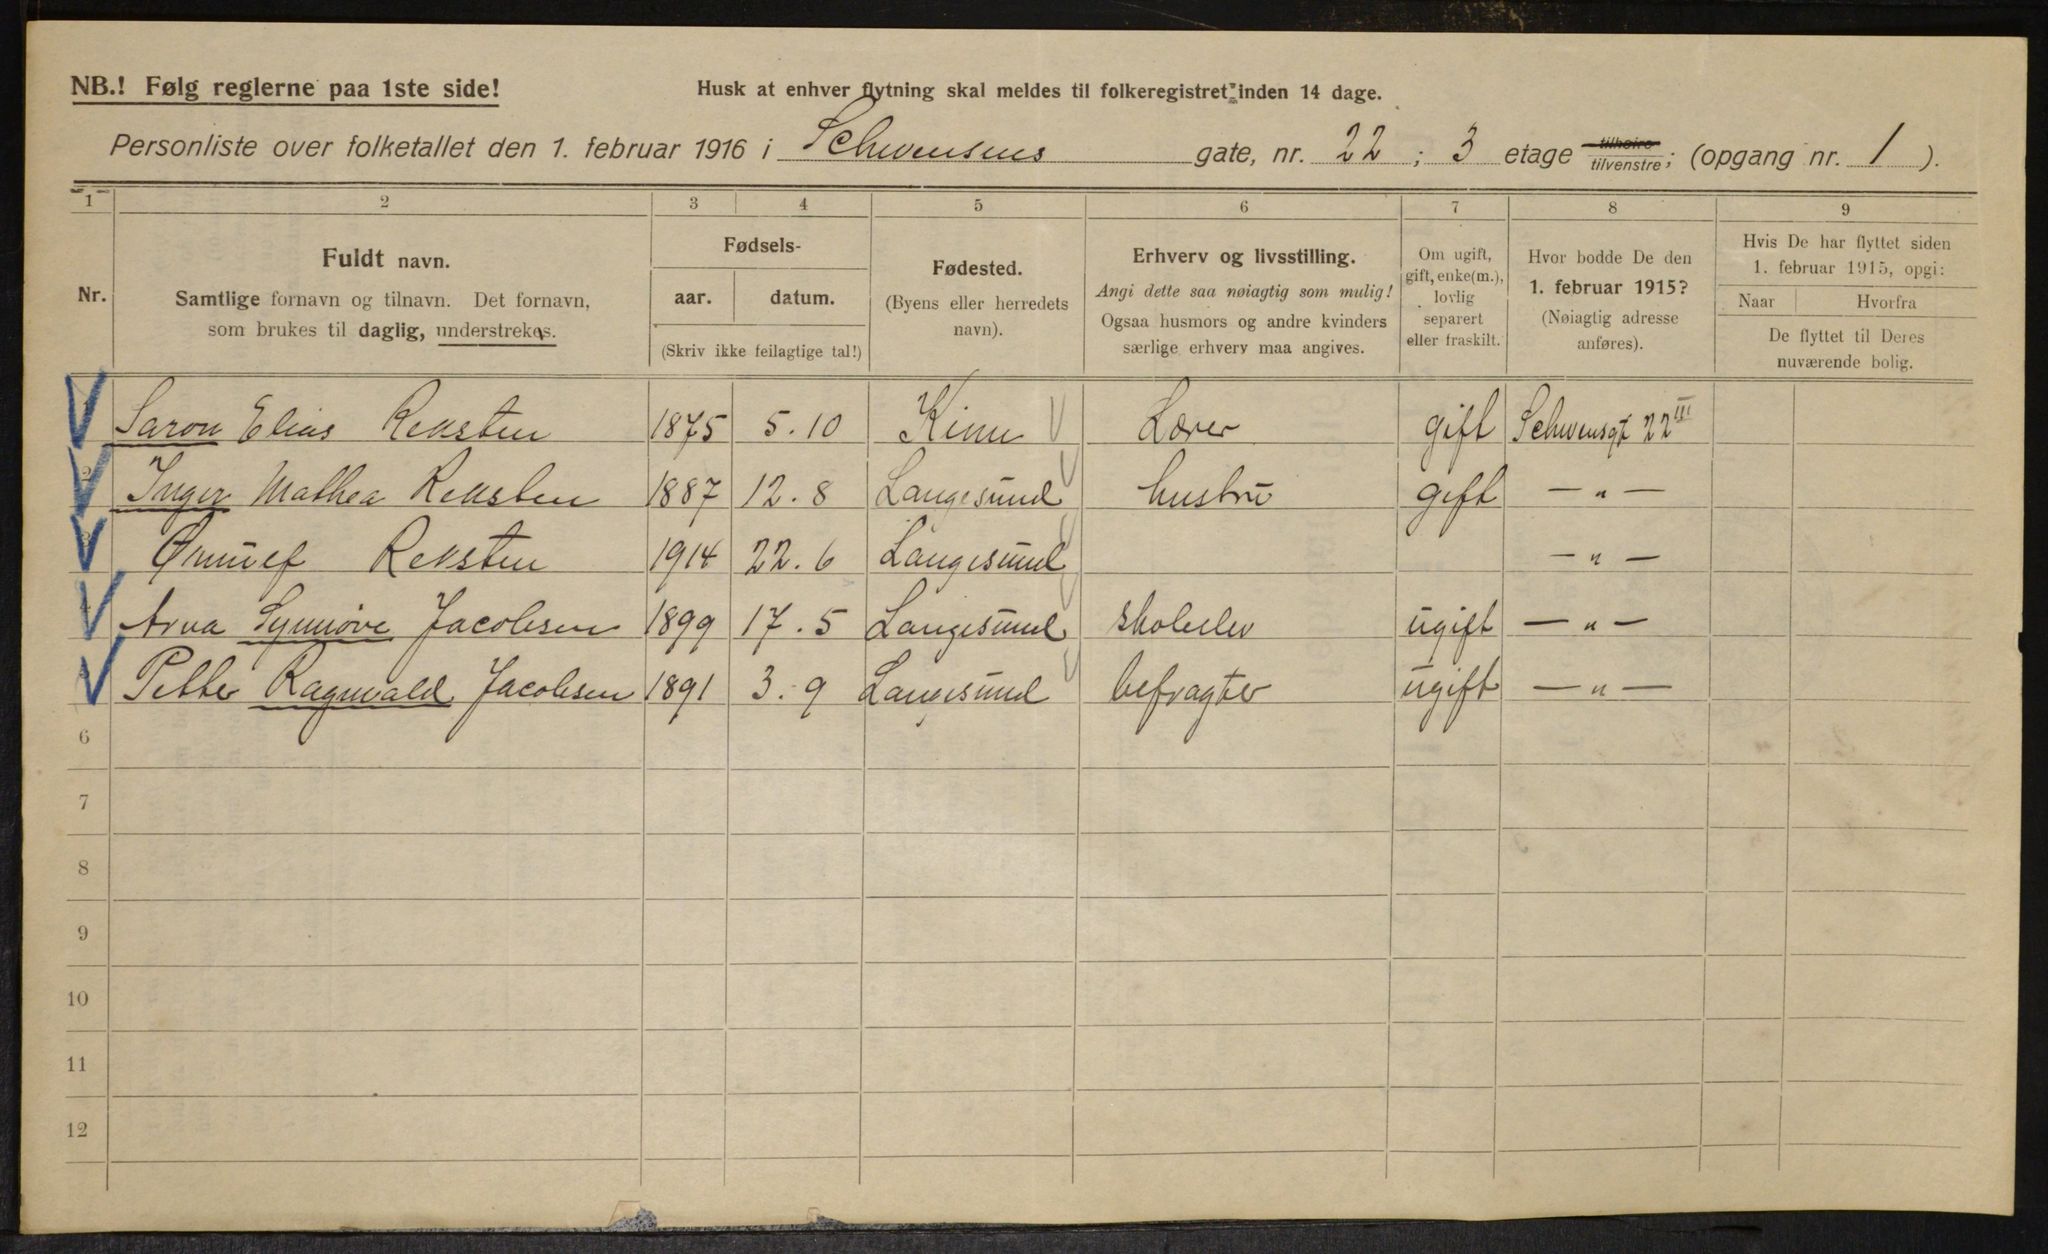 NB.! Følg reglerne paa 1ste side!
Husk at enhver flytning skal meldes til folkeregistret inden 14 dage.
Personliste over folketallet den 1. februar 1916 i Schwensens gate, nr. 22 ; 3 etage tilhøire tilvenstre; (opgang nr. 1 ).
1 2 3 4 5 6 7 8 9
Nr.
Fuldt navn.
Samtlige fornavn og tilnavn. Det fornavn,
som brukes til daglig, understrekes.
Fødsels-
aar. datum.
(Skriv ikke feilagtige tal!)
Fødested.
(Byens eller herredets
navn).
Erhverv og livsstilling.
Angi dette saa nøiagtig som mulig!
Ogsaa husmors og andre kvinders
særlige erhverv maa angives.
Om ugift,
gift, enke(m.),
lovlig
separert
eller fraskilt.
Hvor bodde De den
1. februar 1915?
(Nøiagtig adresse
anføres).
Hvis De har flyttet siden
1. februar 1915, opgi:
Naar Hvorfra
De flyttet til Deres
nuværende bolig.
1 Saron Elias Reksten 1875 5.10 Kinn Lærer gift Schwensgt 22 III
2 Inger Mathea Reksten 1887 12.8 Langesund hustru gift — „ —
3 Ørnulf Reksten 1914 22.6 Langesund — „ —
4 Arna Synnøve Jacobsen 1899 17.5 Langesund skoleelev ugift — „ —
5 Petter Ragnvald Jacobsen 1891 3.9 Langesund befragter ugift — „ —
6
7
8
9
10
11
12